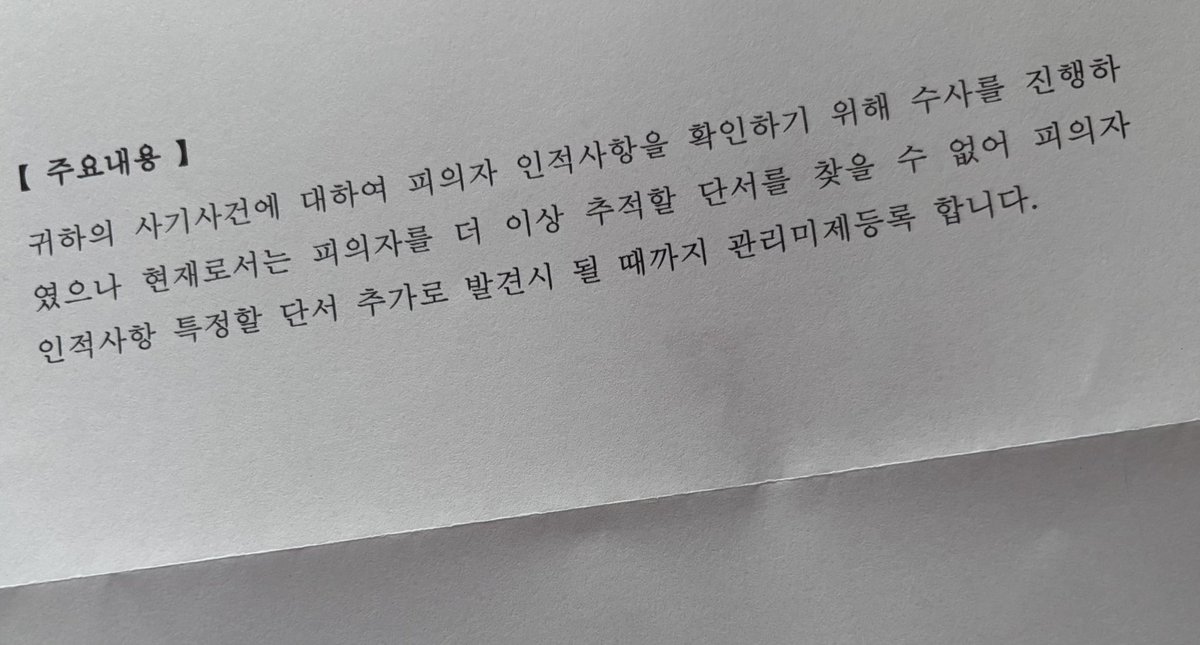 【 주요내용 】
귀하의 사기사건에 대하여 피의자 인적사항을 확인하기 위해 수사를 진행하
였으나 현재로서는 피의자를 더 이상 추적할 단서를 찾을 수 없어 피의자
인적사항 특정할 단서 추가로 발견시 될 때까지 관리미제등록 합니다.